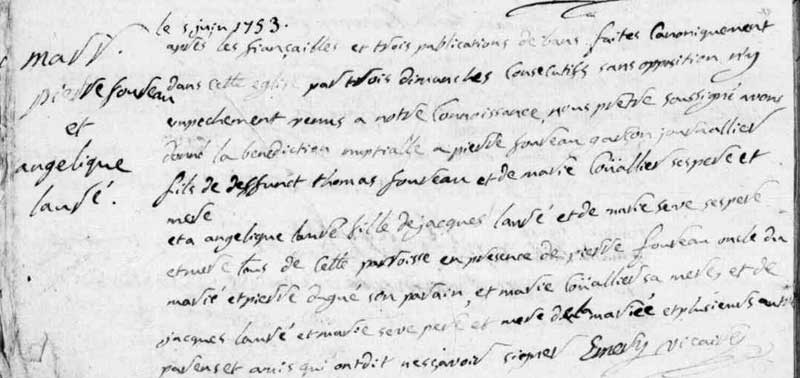 le 5 juin 1753.
marr.
pierre foureau
et
angelique
lauré.
après les fiançailles et trois publications de bans faites canoniquement
dans cette eglise par trois dimanches consecutifs sans opposition n'y
empechement venus a notre connoissance, nous pretre soussigné avons
donné la benediction nuptialle a pierre foureau garçon journallier
fils de deffunct thomas foureau et de marie ses pere et
mere
et a angelique lauré fille de jacques lauré et de marie seve ses pere
et mere tous de cette parroisse en presence de pierre foureau oncle du
marié et pierre dugué son parain, et marie sa mere, et de
jacques lauré et marie seve pere et mere de la mariée et plusieurs autres
parens et amis qui ont dit ne sçavoir signer Emery vicaire